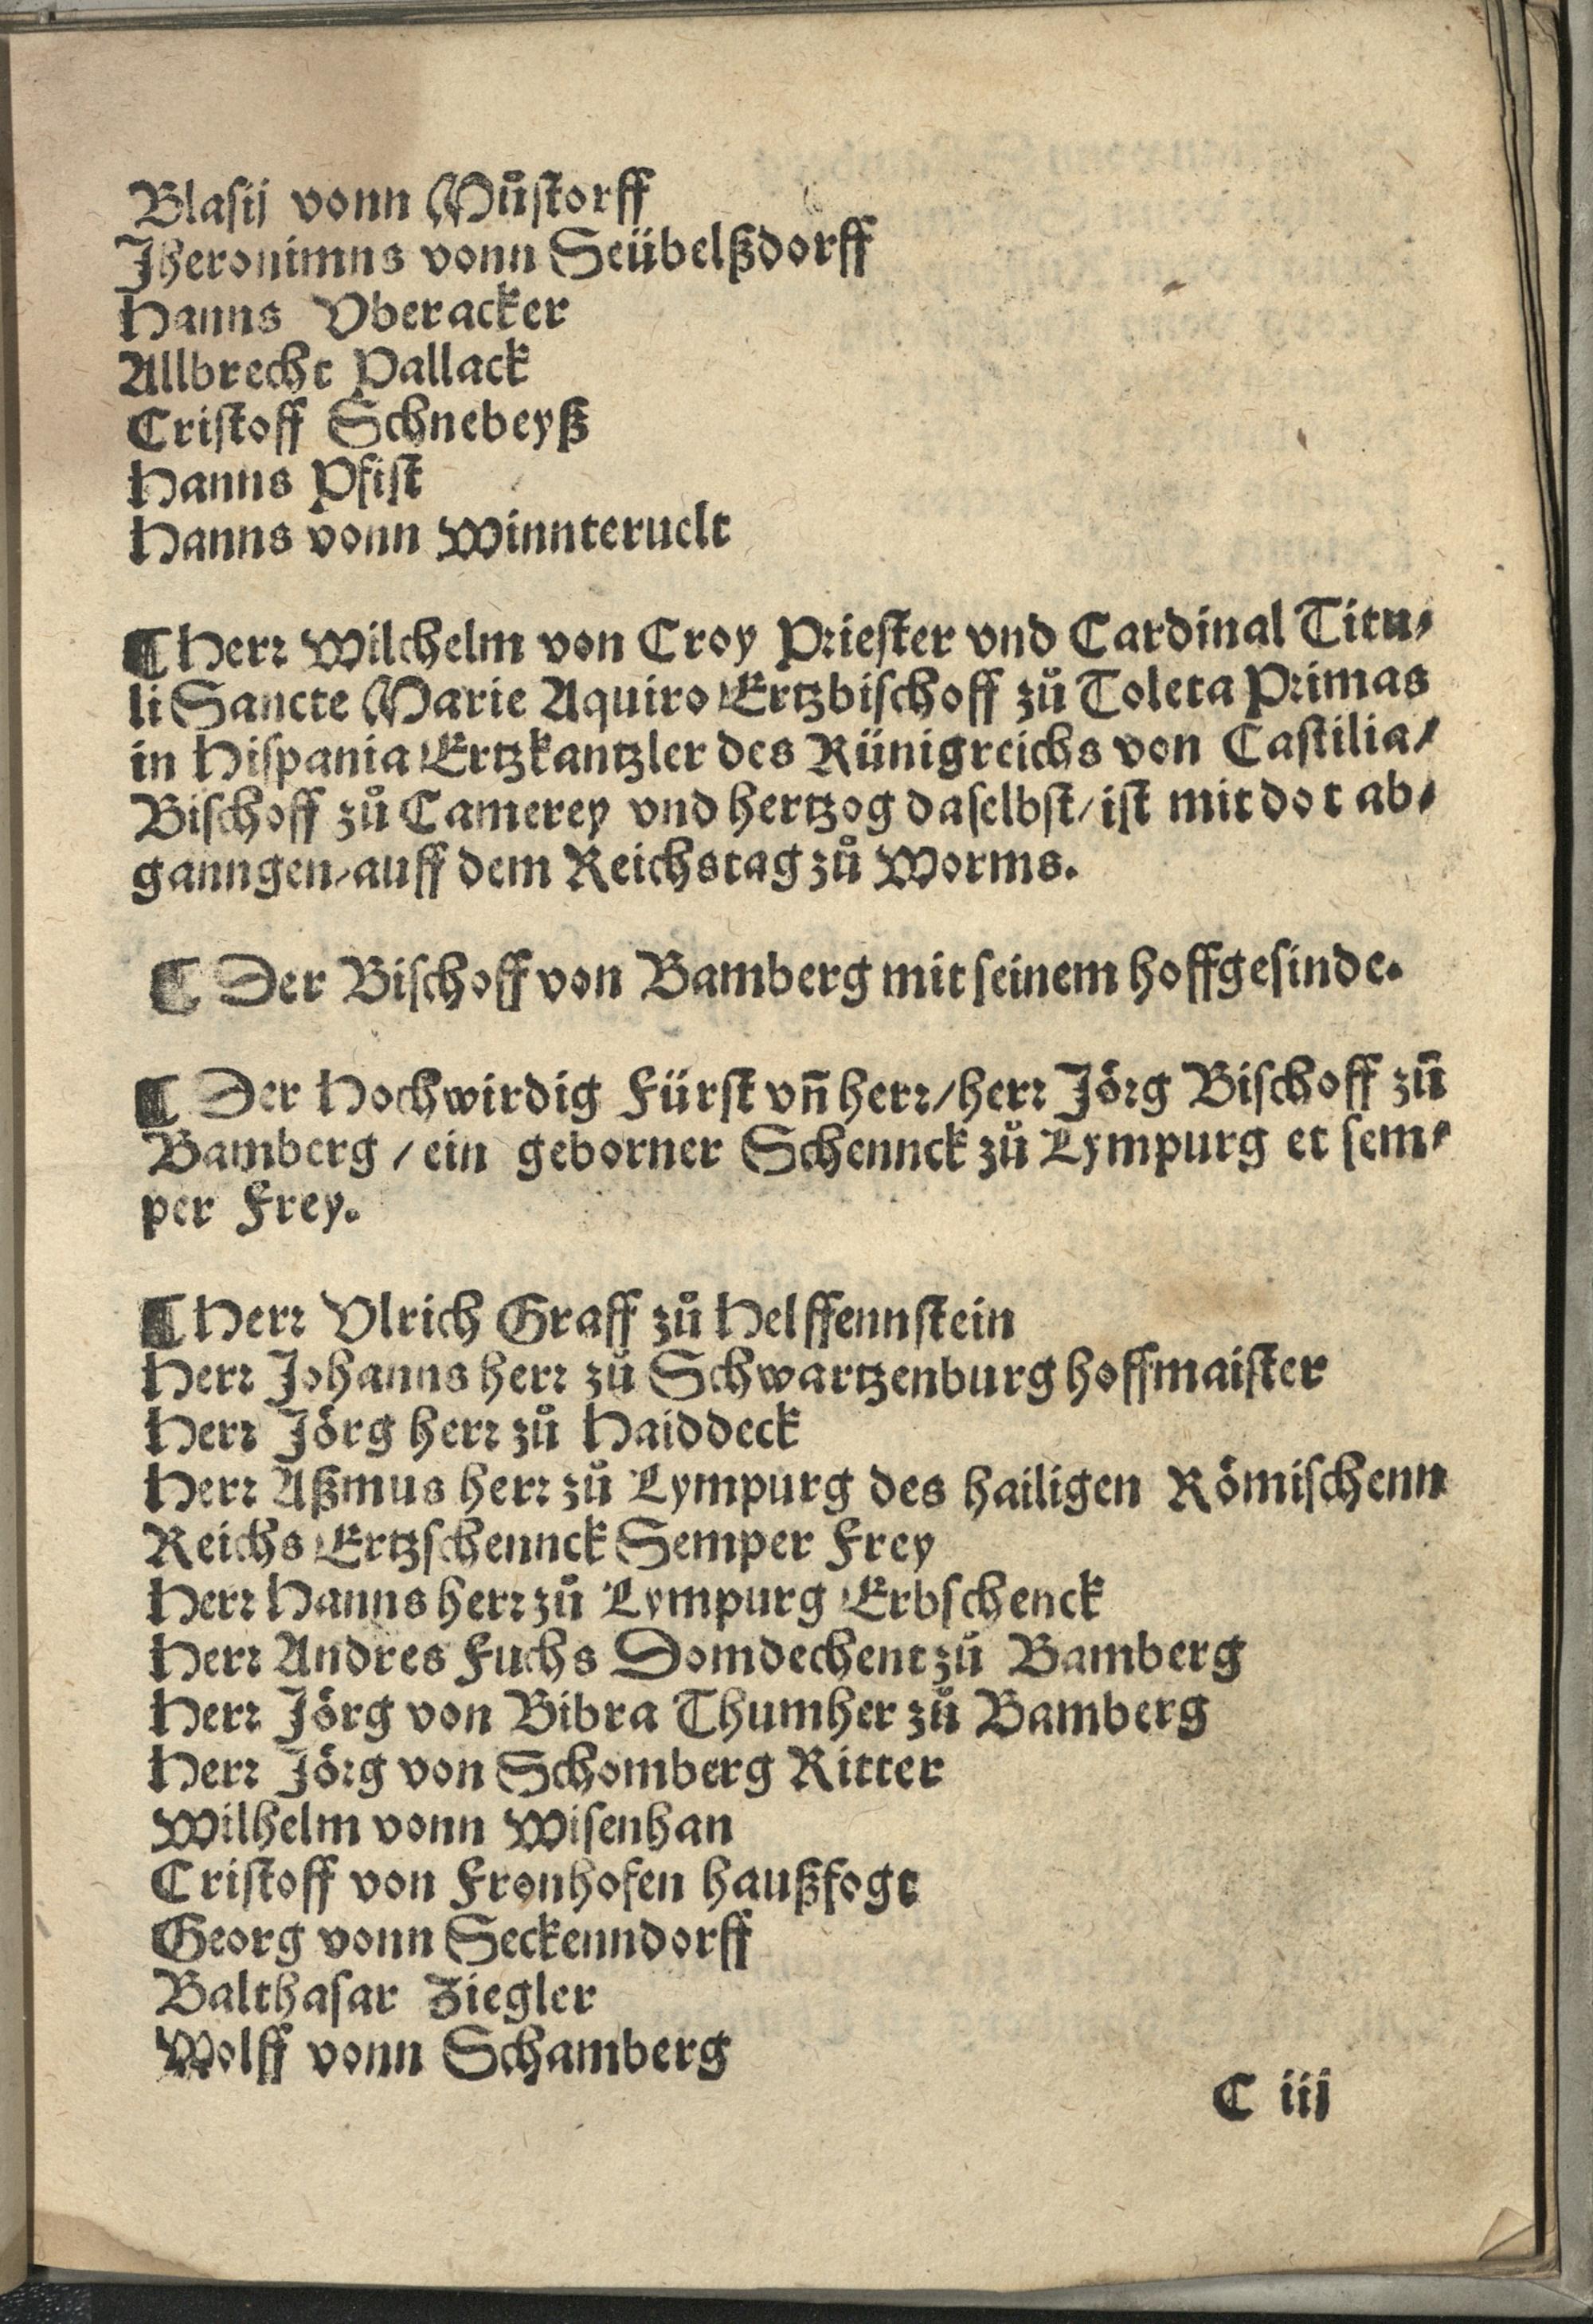 Blasij vonn Můſtorff
Jheronimus vonn Seübelßdorff
Hanns Vberacker
Allbrecht Pallack
Criſtoff Schnebeyß
Hanns Pfiſt
Hanns vonn Winnteruelt
¶ Herꝛ Wilchelm von Croy Pꝛieſter vnd Cardinal Titu⸗
li Sancte Marie Aquiro Ertzbiſchoff zů Toleta Pꝛimas
in Hiſpania Ertzkantzler des Künigreichs von Caſtilia/
Biſchoff zů Camerey vnd hertzog daſelbſt/ iſt mit dot ab⸗
ganngen/ auff dem Reichstag zů Worms.
¶ Der Biſchoff von Bamberg mit ſeinem hoffgeſinde.
¶ Der Hochwirdig Fürſt vñ herꝛ/ herꝛ Jöꝛg Biſchoff zů
Bamberg / ein geborner Schennck zů Lympurg et ſem⸗
per Frey.
¶ Herꝛ Vlrich Graff zů Helffennſtein
Herꝛ Johanns herꝛ zů Schwartzenburg hoffmaiſter
Herꝛ Jörg herꝛ zů Haiddeck
Herꝛ Aßmus herꝛ zů Lympurg des hailigen Römiſchenn
Reichs Ertzſchennck Semper Frey
Herꝛ Hanns herꝛ zů Lympurg Erbſchenck
Herꝛ Andres Fuchs Domdechent zů Bamberg
Herꝛ Jörg von Bibra Thumher zů Bamberg
Herꝛ Jöꝛg von Schomberg Ritter
Wilhelm vonn Wiſenhan
Criſtoff von Fronhofen haußfogt
Georg vonn Seckenndorff
Balthaſar Ziegler
Wolff vonn Schamberg
C iij